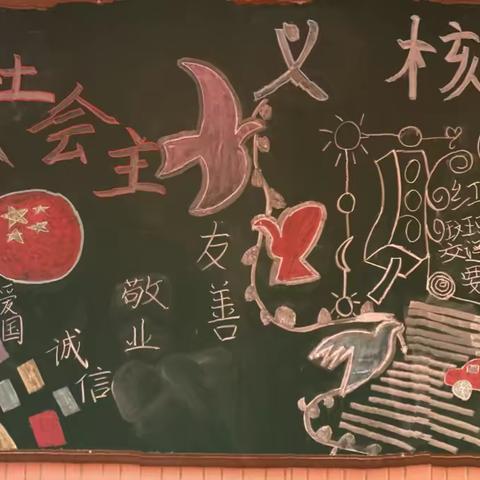 社会主义核
爱国
诚信
敬业
友善
红
要